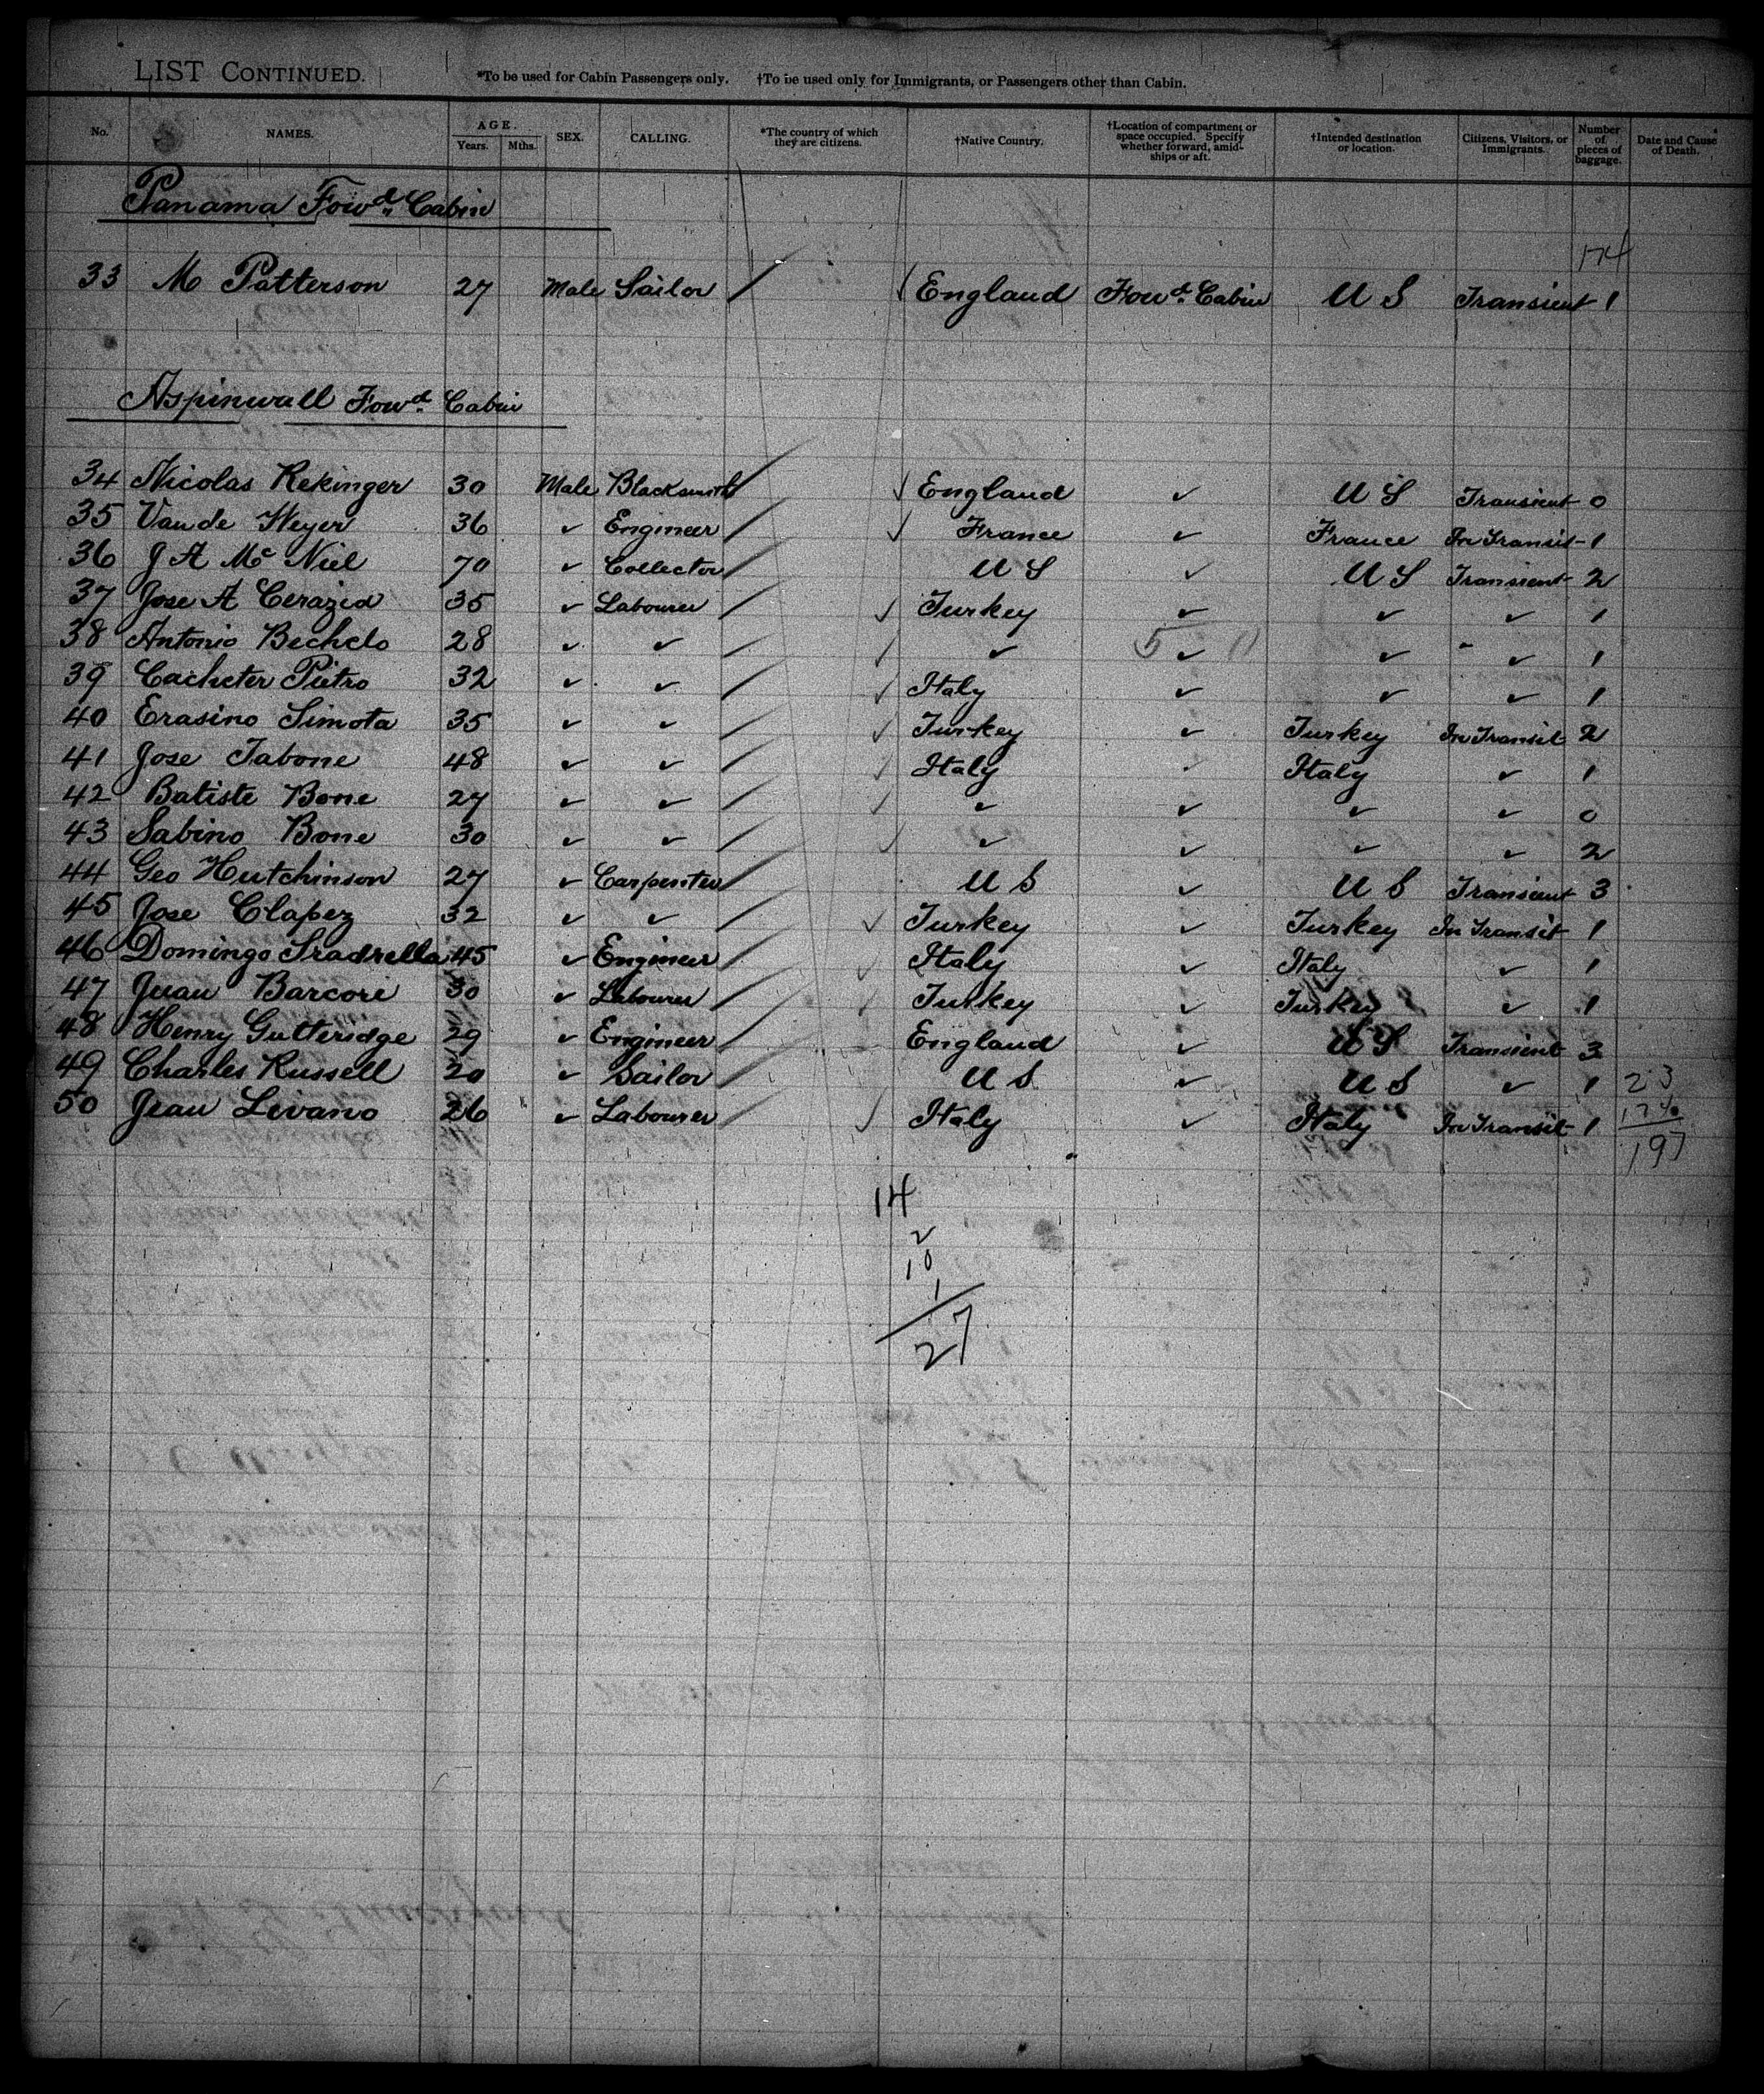 LIST CONTINUED. *To be used for Cabin Passengers only. †To be used only for Immigrants, or Passengers other than Cabin.
No. NAMES. AGE. Years. Mths. SEX. CALLING. *The country of which they are citizens. †Native Country. †Location of compartment or space occupied. Specify whether forward, amidships or aft. †Intended destination or location. Citizens, Visitors, or Immigrants. Number of pieces of baggage. Date and Cause of Death.
Panama Fowd Cabin
174
33 M Patterson 27 Male Sailor / ✓ England Fowd Cabin U S Transient 1
Aspinwall Fowd Cabin
34 Nicolas Rekinger 30 Male Blacksmith / ✓ England ✓ U S Transient 0
35 Van de Weyer 36 ✓ Engineer / ✓ France ✓ France In Transit 1
36 J A Mc Niel 70 ✓ Collector / U S ✓ U S Transient 2
37 Jose A Cerazia 35 ✓ Labourer / ✓ Turkey ✓ ✓ ✓ 1
38 Antonio Bechelo 28 ✓ ✓ / ✓ ✓ 5 ✓ ✓ ✓ 1
39 Cacheter Pietro 32 ✓ ✓ / ✓ Italy ✓ ✓ ✓ 1
40 Erasino Simota 35 ✓ ✓ / ✓ Turkey ✓ Turkey In Transit 2
41 Jose Tabone 48 ✓ ✓ / ✓ Italy ✓ Italy ✓ 1
42 Batiste Bone 27 ✓ ✓ / ✓ ✓ ✓ ✓ ✓ 0
43 Sabino Bone 30 ✓ ✓ / ✓ ✓ ✓ ✓ ✓ 2
44 Geo Hutchinson 27 ✓ Carpenter / U S ✓ U S Transient 3
45 Jose Clapez 32 ✓ ✓ / ✓ Turkey ✓ Turkey In Transit 1
46 Domingo Sradrella 45 ✓ Engineer / ✓ Italy ✓ Italy ✓ 1
47 Juan Barcore 30 ✓ Labourer / ✓ Turkey ✓ Turkey ✓ 1
48 Henry Gutteridge 29 ✓ Engineer / England ✓ U S Transient 3
49 Charles Russell 20 ✓ Sailor / U S ✓ U S ✓ 1 23
50 Jean Livano 26 ✓ Labourer / ✓ Italy ✓ Italy In Transit 1 174
197
14
2
10
1
27